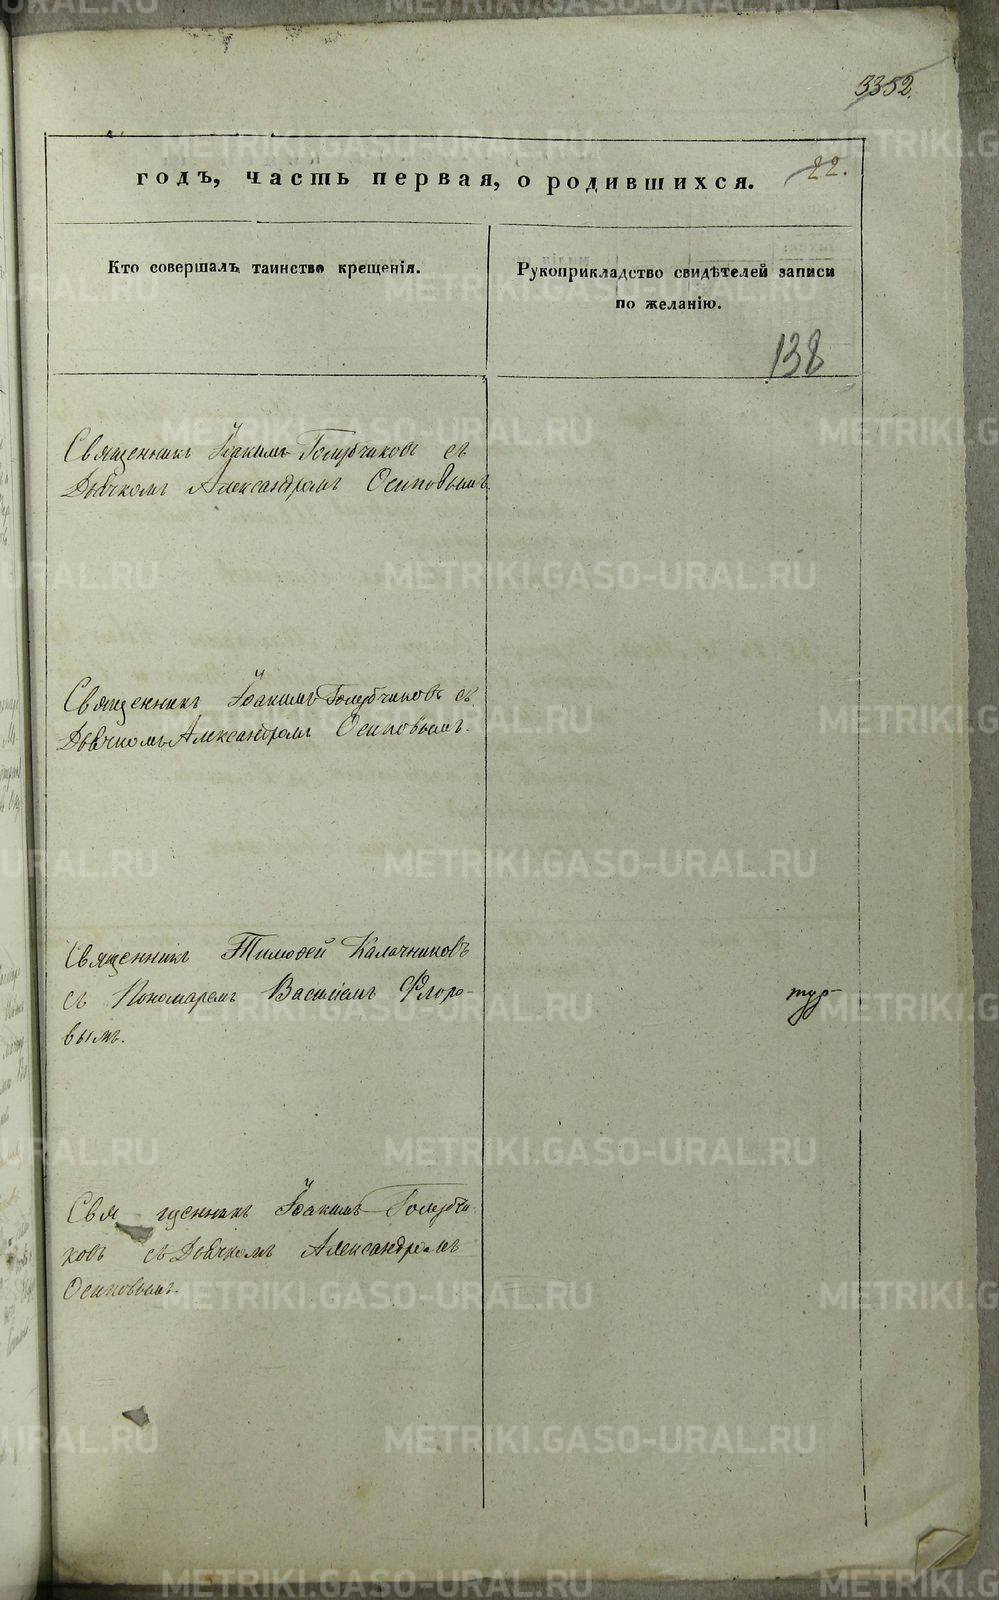 3352.
годъ, часть первая, о родившихся.
22.
Кто совершалъ таинство крещенія.
Рукоприкладство свидѣтелей записи
по желанію.
138
Священникъ Іоакимъ Голубчиковъ съ
Дьячкомъ Александромъ Осиповымъ.
Священникъ Іоакимъ Голубчиковъ съ
Дьячкомъ Александромъ Осиповымъ.
Священникъ Тимоѳей Калачниковъ
съ Пономаремъ Василіемъ Флоро-
вымъ.
Священникъ Іоакимъ Голубчи
ковъ съ Дьячкомъ Александромъ
Осиповымъ.
METRIKI.GASO-URAL.RU